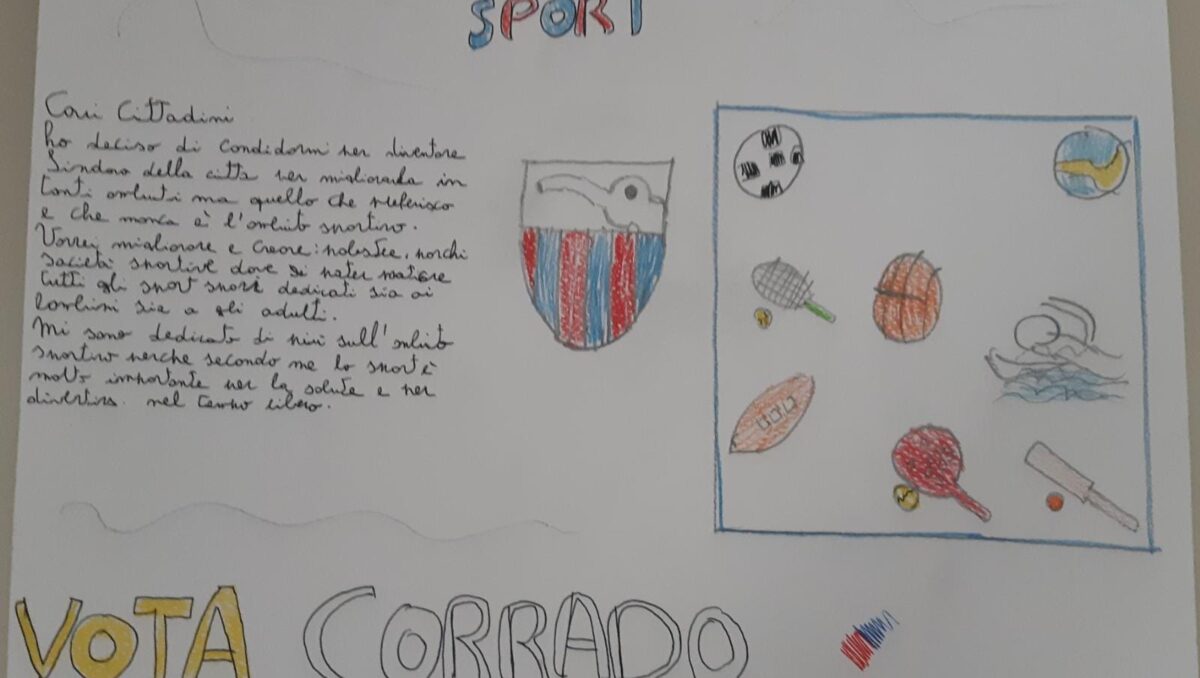 SPORT
Cari Cittadini
ho deciso di Candidarmi per diventare
Sindaco della città per migliorarla in
tanti ambiti ma quello che preferisco
e che manca è l'ambito sportivo.
Vorrei migliorare e Creare: palestre, parchi
società sportive dove si
tutti gli sport dedicati sia ai
bambini sia a gli adulti.
Mi sono dedicato di più sull'ambito
sportivo perche secondo me lo sport è
molto importante per la salute e per
divertirsi nel tempo libero.
VOTA CORRADO